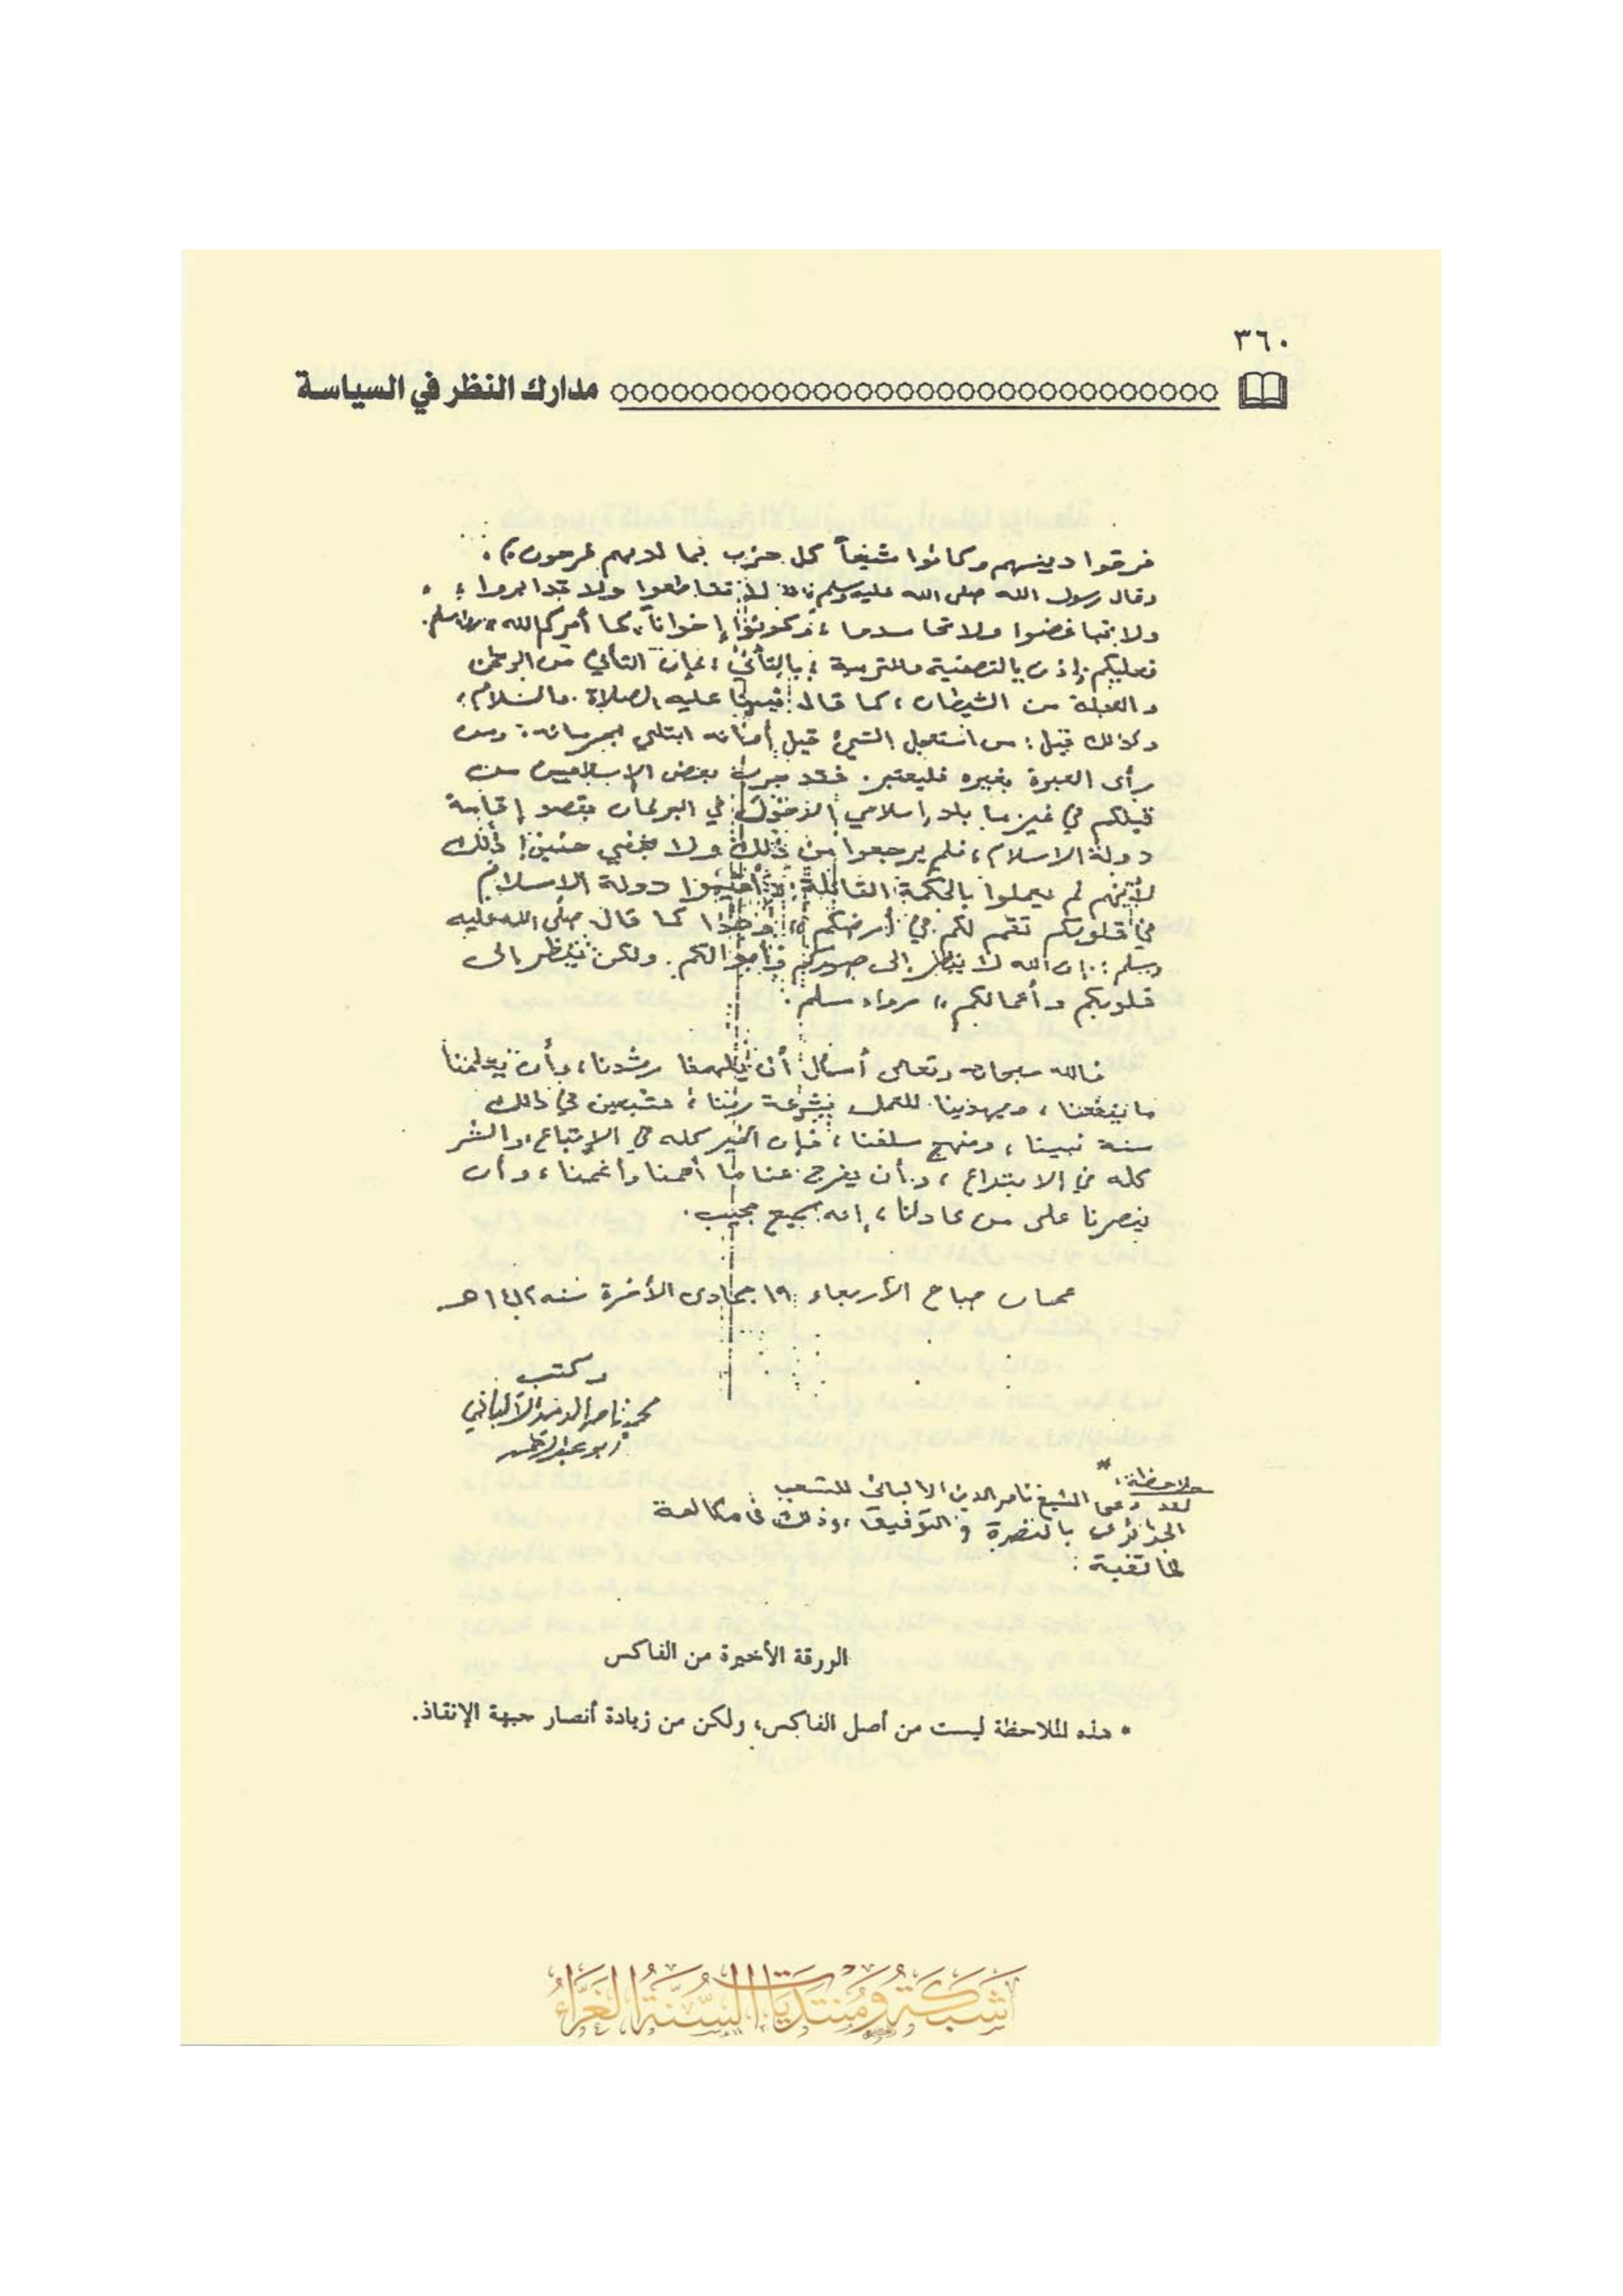 ٣٦٠
مدارك النظر في السياسة
فرقوا دينهم وكانوا شيعاً كل حزب بما لديهم فرحون﴾.
وقال رسول الله صلى الله عليه وسلم: لا تقاطعوا ولا تدابروا،
ولا تباغضوا ولا تحاسدوا، وكونوا إخواناً، كما أمركم الله» رواه مسلم.
فعليكم إذن بالتصفية والتربية؛ بالتأني؛ فإن التأني من الرحمن
والعجلة من الشيطان، كما قال نبينا عليه الصلاة والسلام،
وكذلك قيل: من استعجل الشيء قبل أوانه ابتلي بحرمانه. ومن
رأى العبرة بغيره فليعتبر. فقد جرب بعض الإسلاميين من
قبلكم في غير ما بلد إسلامي الدخول في البرلمان بقصد إقامة
دولة الاسلام، فلم يرجعوا من ذلك ولا بخفي حنين! ذلك
لأنهم لم يعملوا بالحكمة القائلة: «أقيموا دولة الاسلام
في قلوبكم تقم لكم في أرضكم»، وهكذا كما قال صلى الله عليه
وسلم: إن الله لا ينظر إلى صوركم وأموالكم. ولكن ينظر إلى
قلوبكم وأعمالكم» رواه مسلم.
فالله سبحانه وتعالى أسأل أن يلهمنا رشدنا، وأن يعلمنا
ما ينفعنا، ويهدينا للعمل بشرعة ربنا، متبعين في ذلك
سنة نبينا، ومنهج سلفنا، فإن الخير كله في الإتباع، والشر
كله في الابتداع، وأن يفرج عنا ما أهمنا وأغمنا، وأن
ينصرنا على من عادانا، إنه سميع مجيب.
عمان صباح الأربعاء ١٩ جمادى الأخرة سنه ١٤١٢هـ
وكتب
محمد ناصر الدين الألباني
أبو عبد الرحمن
ملاحظة: *
لقد دعى الشيخ ناصر الدين الالبانى للشعب
الجزائرى بالنصرة و التوفيق، وذلك فى مكالمة
هاتفية.
الورقة الأخيرة من الفاكس
* هذه الملاحظة ليست من أصل الفاكس، ولكن من زيادة أنصار جبهة الإنقاذ.
شَبَكَة وَمُنتَدَيَات السُّنَّة الغَرَّاءُ